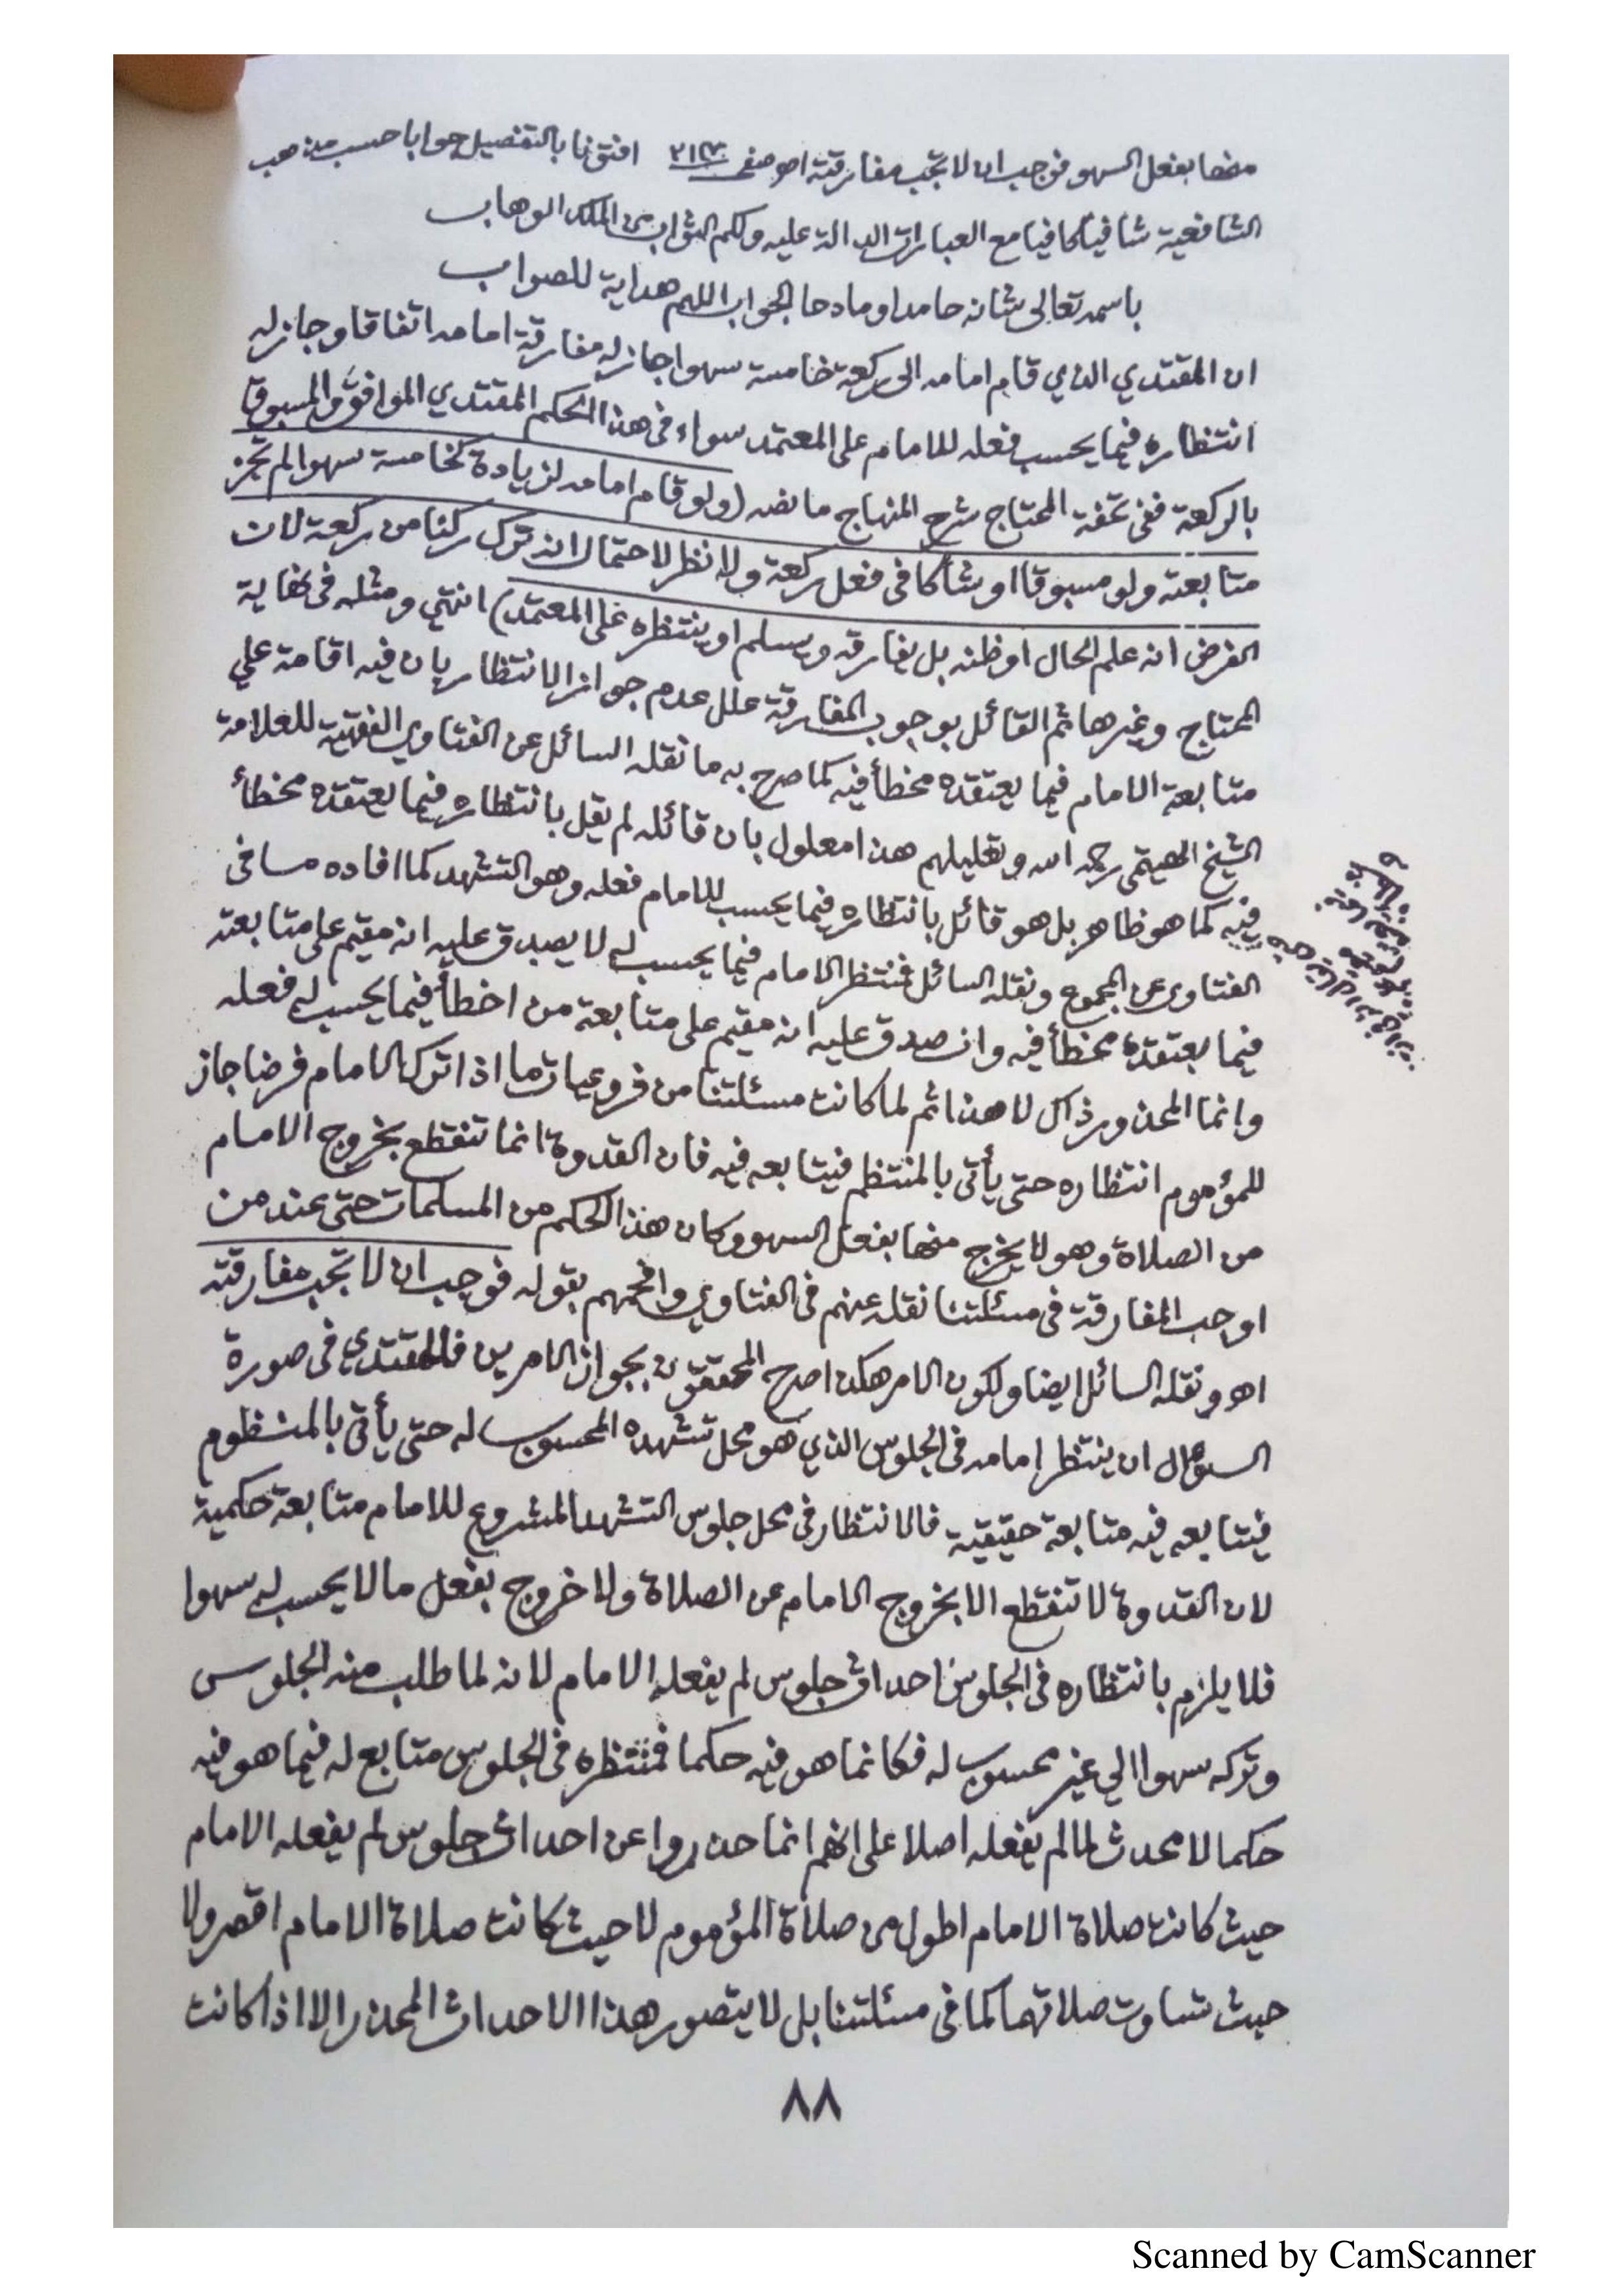 منها بفعل السهو فوجب ان لا تجب مفارقته اهـ صفى ٢١٣ افتونا بالتفصيل جوابا حسب مذهب
الشافعية شافيا كافيا مع العبارات الدالة عليه ولكم الثواب من الملك الوهاب
باسمه تعالى شانه حامدا ومادحا الجواب اللهم هداية للصواب
ان المقتدي الذي قام امامه الى ركعة خامسة سهوا جاز له مفارقة امامه اتفاقا وجاز له
انتظاره فيما يحسب فعله للامام على المعتمد سواء فى هذا الحكم المقتدي الموافق والمسبوق
بالركعة ففى تحفة المحتاج شرح المنهاج ما نصه (ولو قام امامه لزيادة كخامسة سهوا لم تجز
متابعته ولو مسبوقا او شاكا فى فعل ركعة ولا نظر لاحتمال انه ترك ركنا من ركعة لان
الفرض انه علم الحال او ظنه بل يفارقه ويسلم او ينتظره على المعتمد) انتهى ومثله فى نهاية
المحتاج وغيرها ثم القائل بوجوب المفارقة علل عدم جواز الانتظار بان فيه اقامة على
متابعة الامام فيما يعتقده مخطأ فيه كما صرح به ما نقله السائل عن الفتاوى الفقهية للعلامة
الشيخ الهيتمى رحمه الله وتعليلهم هذا معلول بان قائله لم يقل بانتظاره فيما يعتقده مخطأ
فيه كما هو ظاهر بل هو قائل بانتظاره فيما يحسب للامام فعله وهو التشهد كما افاده ما فى
الفتاوى عن المجموع ونقله السائل فمنتظر الامام فيما يحسب له لا يصدق عليه انه مقيم على متابعته
فيما يعتقده مخطأ فيه وان صدق عليه انه مقيم على متابعة من اخطأ فيما يحسب له فعله
وانما المحذور ذاك لا هذا ثم لما كانت مسئلتنا من فروعيات ما اذا ترك الامام فرضا جاز
للمؤموم انتظاره حتى يأتى بالمنتظم فيتابعه فيه فان القدوة انما تنقطع بخروج الامام
من الصلاة وهو لا يخرج منها بفعل السهو وكان هذا الحكم من المسلمات حتى عند من
اوجب المفارقة فى مسئلتنا نقله عنهم فى الفتاوي وافحمهم بقوله فوجب ان لا تجب مفارقته
اهـ ونقله السائل ايضا ولكون الامر هكذا صرح المحققون بجواز الامرين فالمقتدي فى صورة
السؤال ان ينتظر امامه فى الجلوس الذي هو محل تشهده المحسوب له حتى يأتى بالمنظوم
فيتابعه فيه متابعة حقيقية فالانتظار فى محل جلوس التشهد المشروع للامام متابعة حكمية
لان القدوة لا تنقطع الا بخروج الامام عن الصلاة ولا خروج بفعل ما لا يحسب له سهوا
فلا يلزم بانتظاره فى الجلوس احداث جلوس لم يفعله الامام لانه لما طلب منه الجلوس
وتركه سهوا الى غير محسوب له فكانما هو فيه حكما فمنتظره فى الجلوس متابع له فيما هو فيه
حكما لا محدث لما لم يفعله اصلا على انهم انما حذروا عن احداث جلوس لم يفعله الامام
حيث كانت صلاة الامام اطول من صلاة المؤموم لا حيث كانت صلاة الامام اقصر ولا
حيث تساوت صلاتهما كما فى مسئلتنا بل لا يتصور هذا الاحداث المحذر الا اذا كانت
٨٨
Scanned by CamScanner